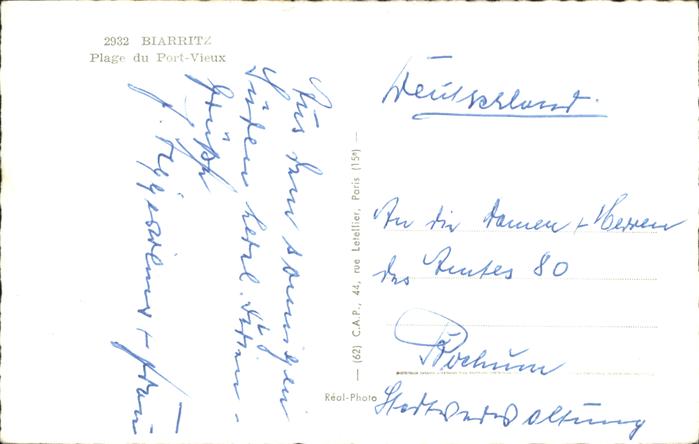 2932 BIARRITZ
Plage du Port-Vieux
Aus dem sonnigen
Süden herzl.
Grüße
+ Frau
(62) C.A.P., 44, rue Letellier, Paris (15e)
Réal-Photo
Deutschland.
An die Damen + Herren
des Amtes 80
Bochum
Stadtverwaltung